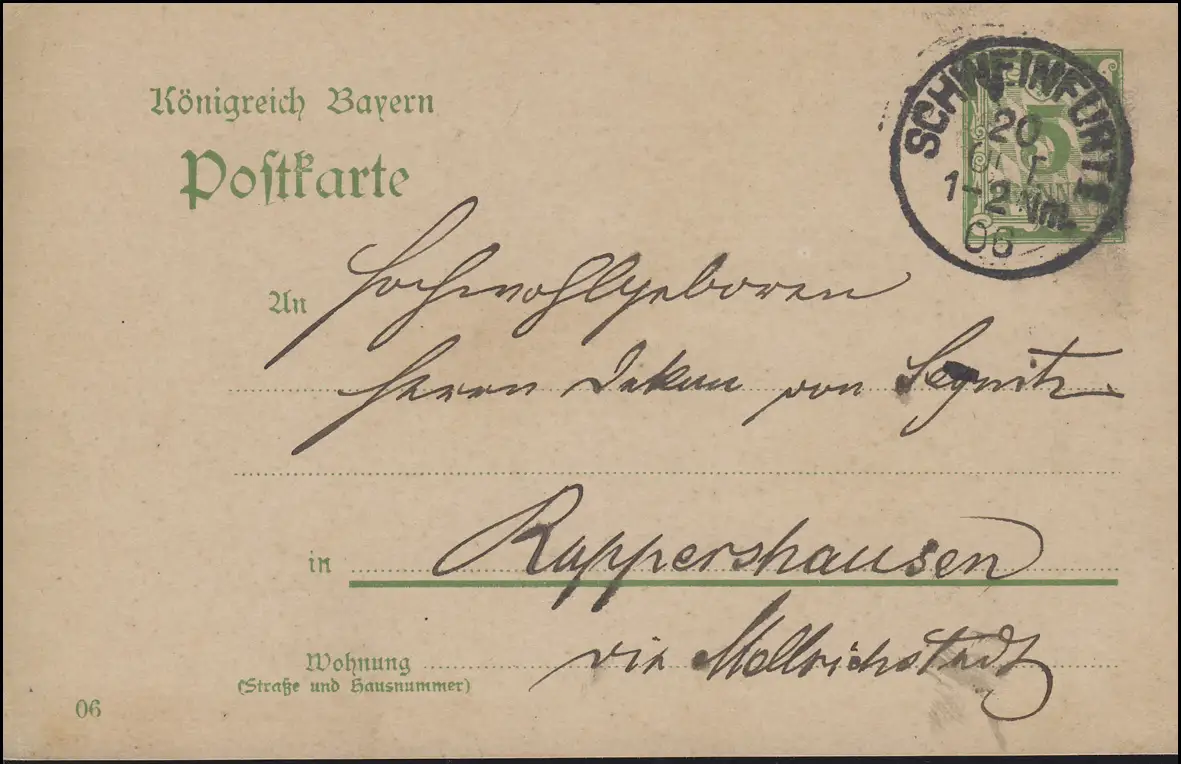 Königreich Bayern
Postkarte
SCHWEINFURT
20
1-2 Nm.
06
5
An Hochwohlgeboren
Herrn Dekan von Segnitz
in Rappershausen
Wohnung via Mellrichstadt
(Straße und Hausnummer)
06